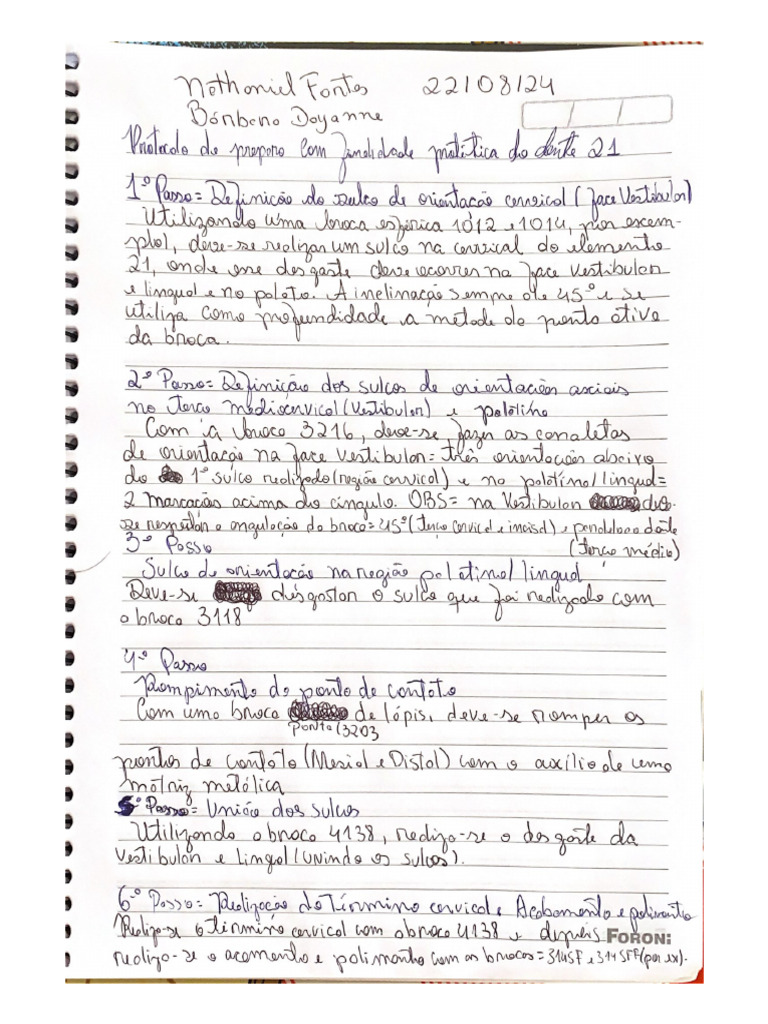 Nathaniel Fontes 22/08/24
Bárbara Dayanne
Protocolo de preparo com finalidade protética do dente 21
1º Passo = Definição do sulco de orientação cervical (face Vestibular)
Utilizando uma broca esférica 1012 e 1014, por exem-
plo), deve-se realizar um sulco na cervical do elemento
21, onde esse desgaste deve ocorrer na face vestibular
e lingual e no palato. A inclinação sempre de 45º e se
utiliza como profundidade a metade da ponta ativa
da broca.
2º Passo = Definição dos sulcos de orientações axiais
no terço mediocervical (vestibular) e palatino
Com a broca 3216, deve-se fazer as canaletas
de orientação na face vestibular = três orientações abaixo
do 1º sulco realizado (região cervical) e na palatina/lingual =
2 marcações acima do cíngulo. OBS = na Vestibular deve-
se respeitar a angulação da broca = 45º (terço cervical e incisal) e
(terço médio)
3º Passo
Sulco de orientação na região palatina/lingual
Deve-se desgastar o sulco que foi realizado com
a broca 3118
4º Passo
Rompimento do ponto de contato
Com uma broca de lápis, deve-se romper os
Ponta (3203
pontos de contato (Mesial e Distal) com o auxílio de uma
matriz metálica
5º Passo = União dos sulcos
Utilizando a broca 4138, realiza-se o desgaste da
Vestibular e Lingal (unindo os sulcos).
6º Passo = Realização do Término cervical e Acabamento e polimento
Realiza-se o término cervical com a broca 4138 e depois
FORONI
realiza-se o acamento e polimento com as brocas = 314SF e 314SFF (por ex).